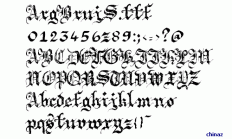 ArgBrujS.ttf
0123456789:;¿?@
ABCDEFGHIJKLM
NOPQRSTUVWXYZ
abcdefghijklmno
pqrstuvwxyz{|
chinaz